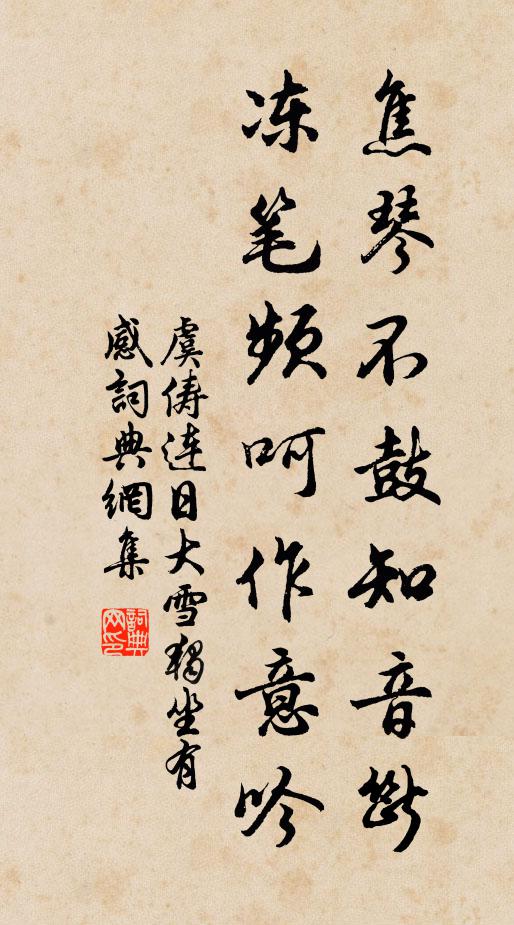 焦琴不鼓知音斷
冻笔频呵作意吟
虞俦连日大雪獨坐有
感詞典網集
詞典
网印